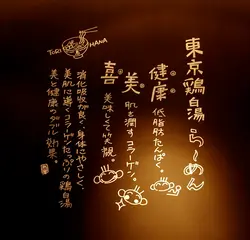 東京鶏白湯 らーめん
健康 低脂肪たんぱく。
美 肌を潤すコラーゲン。
喜 美味しくて笑顔。
TORI HANA
消化吸収が良く、身体にやさしく、
美肌に導くコラーゲンたっぷりの鶏白湯
美と健康のダブル効果。